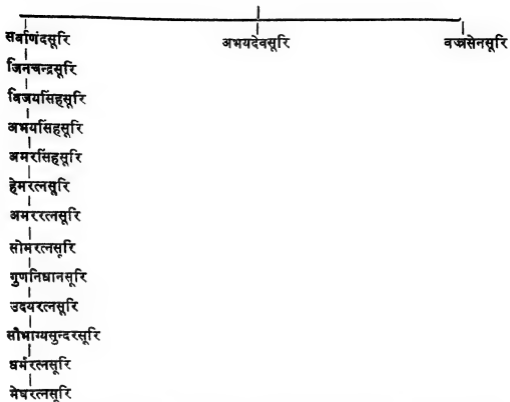 सर्वाणंदसूरि अभयदेवसूरि वज्रसेनसूरि
जिनचन्द्रसूरि
विजयसिंहसूरि
अभयसिंहसूरि
अमरसिंहसूरि
हेमरत्नसूरि
अमररत्नसूरि
सोमरत्नसूरि
गुणनिधानसूरि
उदयरत्नसूरि
सौभाग्यसुन्दरसूरि
धर्मरत्नसूरि
मेघरत्नसूरि